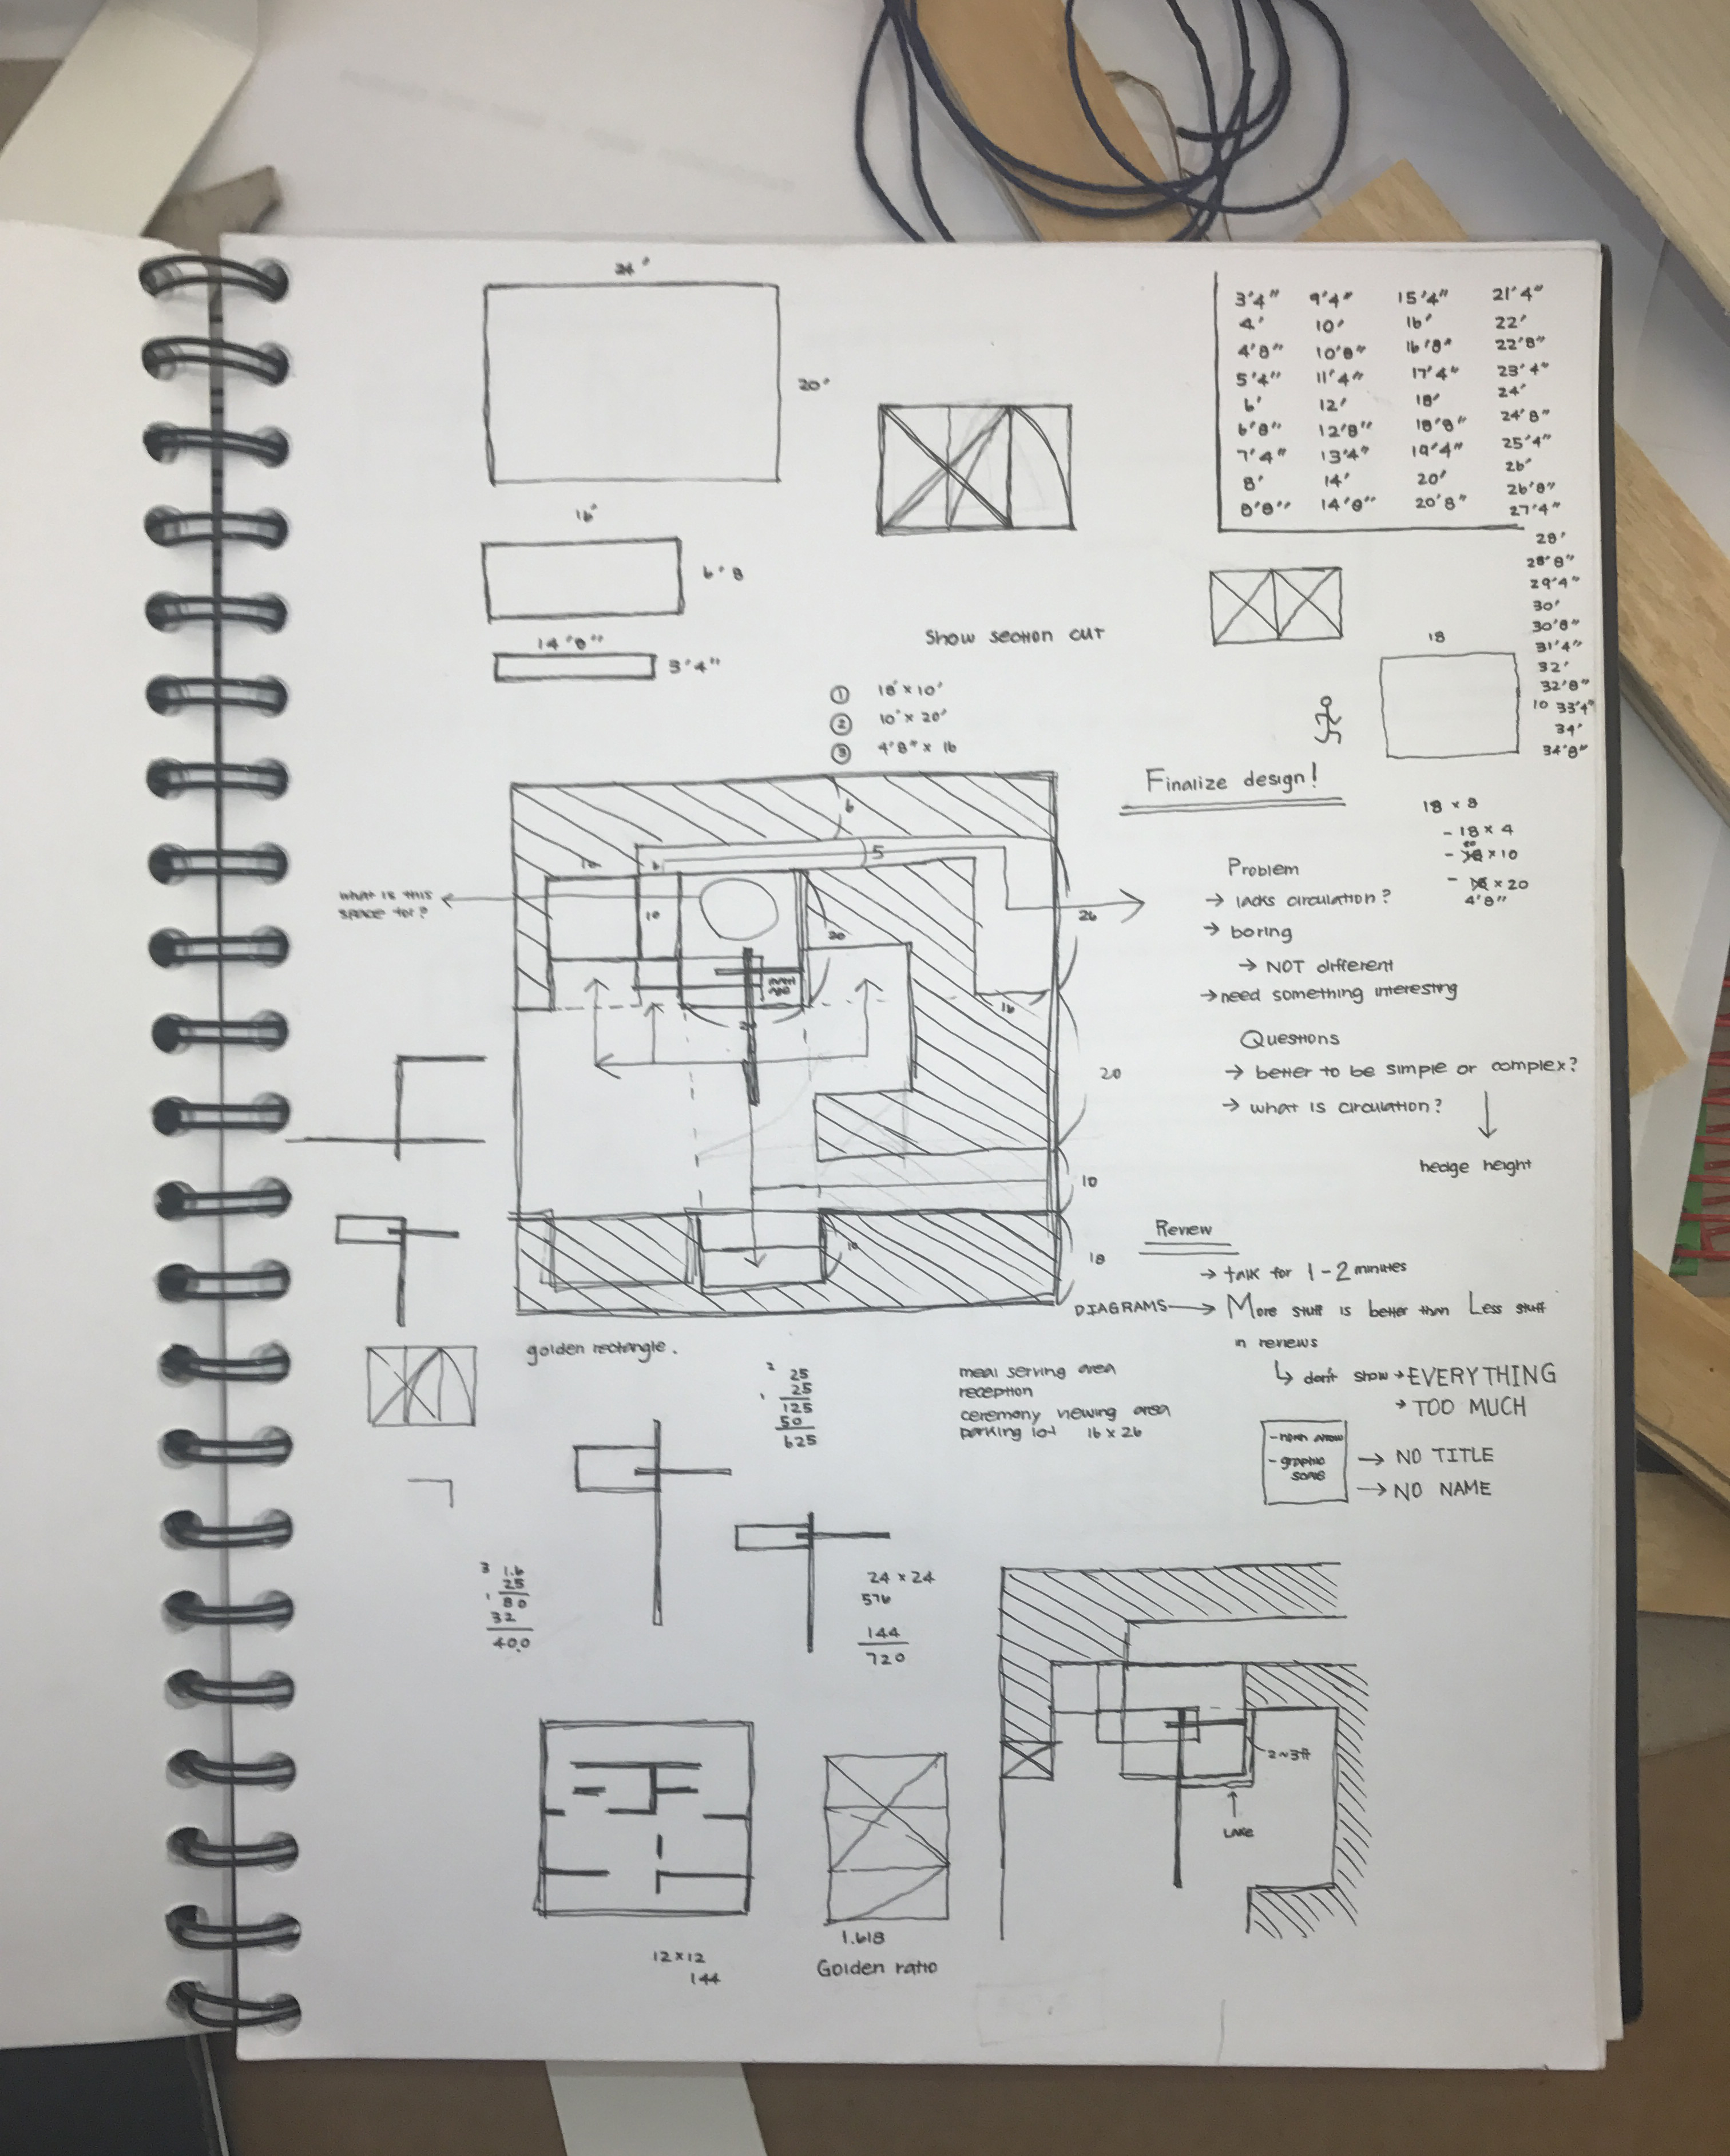 24'
20'
16'
6'8
14'8"
3'4"
3'4" 9'4" 15'4" 21'4"
4' 10' 16' 22'
4'8" 10'8" 16'8" 22'8"
5'4" 11'4" 17'4" 23'4"
6' 12' 18' 24'
6'8" 12'8" 18'8" 24'8"
7'4" 13'4" 19'4" 25'4"
8' 14' 20' 26'
8'8" 14'8" 20'8" 26'8"
27'4"
28'
28'8"
29'4"
30'
30'8"
31'4"
32'
32'8"
33'4"
34'
34'8"
18
10
Show section cut
① 18' x 10'
② 10' x 20'
③ 4'8" x 16
Finalize design!
18 x 8
- 18 x 4
- 20 x 10
- x 20
4'8"
6
5
10
10
20
26
16
20
10
18
10
what is this
space for?
Problem
→ lacks circulation?
→ boring
→ NOT different
→ need something interesting
Questions
→ better to be simple or complex?
→ what is circulation?
hedge height
Review
→ talk for 1-2 minutes
DIAGRAMS → More stuff is better than Less stuff
in reviews
↳ don't show → EVERYTHING
→ TOO MUCH
- north arrow
- graphic
scale
→ NO TITLE
→ NO NAME
golden rectangle.
2
25
1 25
125
50
625
meal serving area
reception
ceremony viewing area
parking lot 16 x 26
3 1.6
25
1 80
32
40.0
24 x 24
576
144
720
2~3ft
LAKE
12x12
144
1.618
Golden ratio